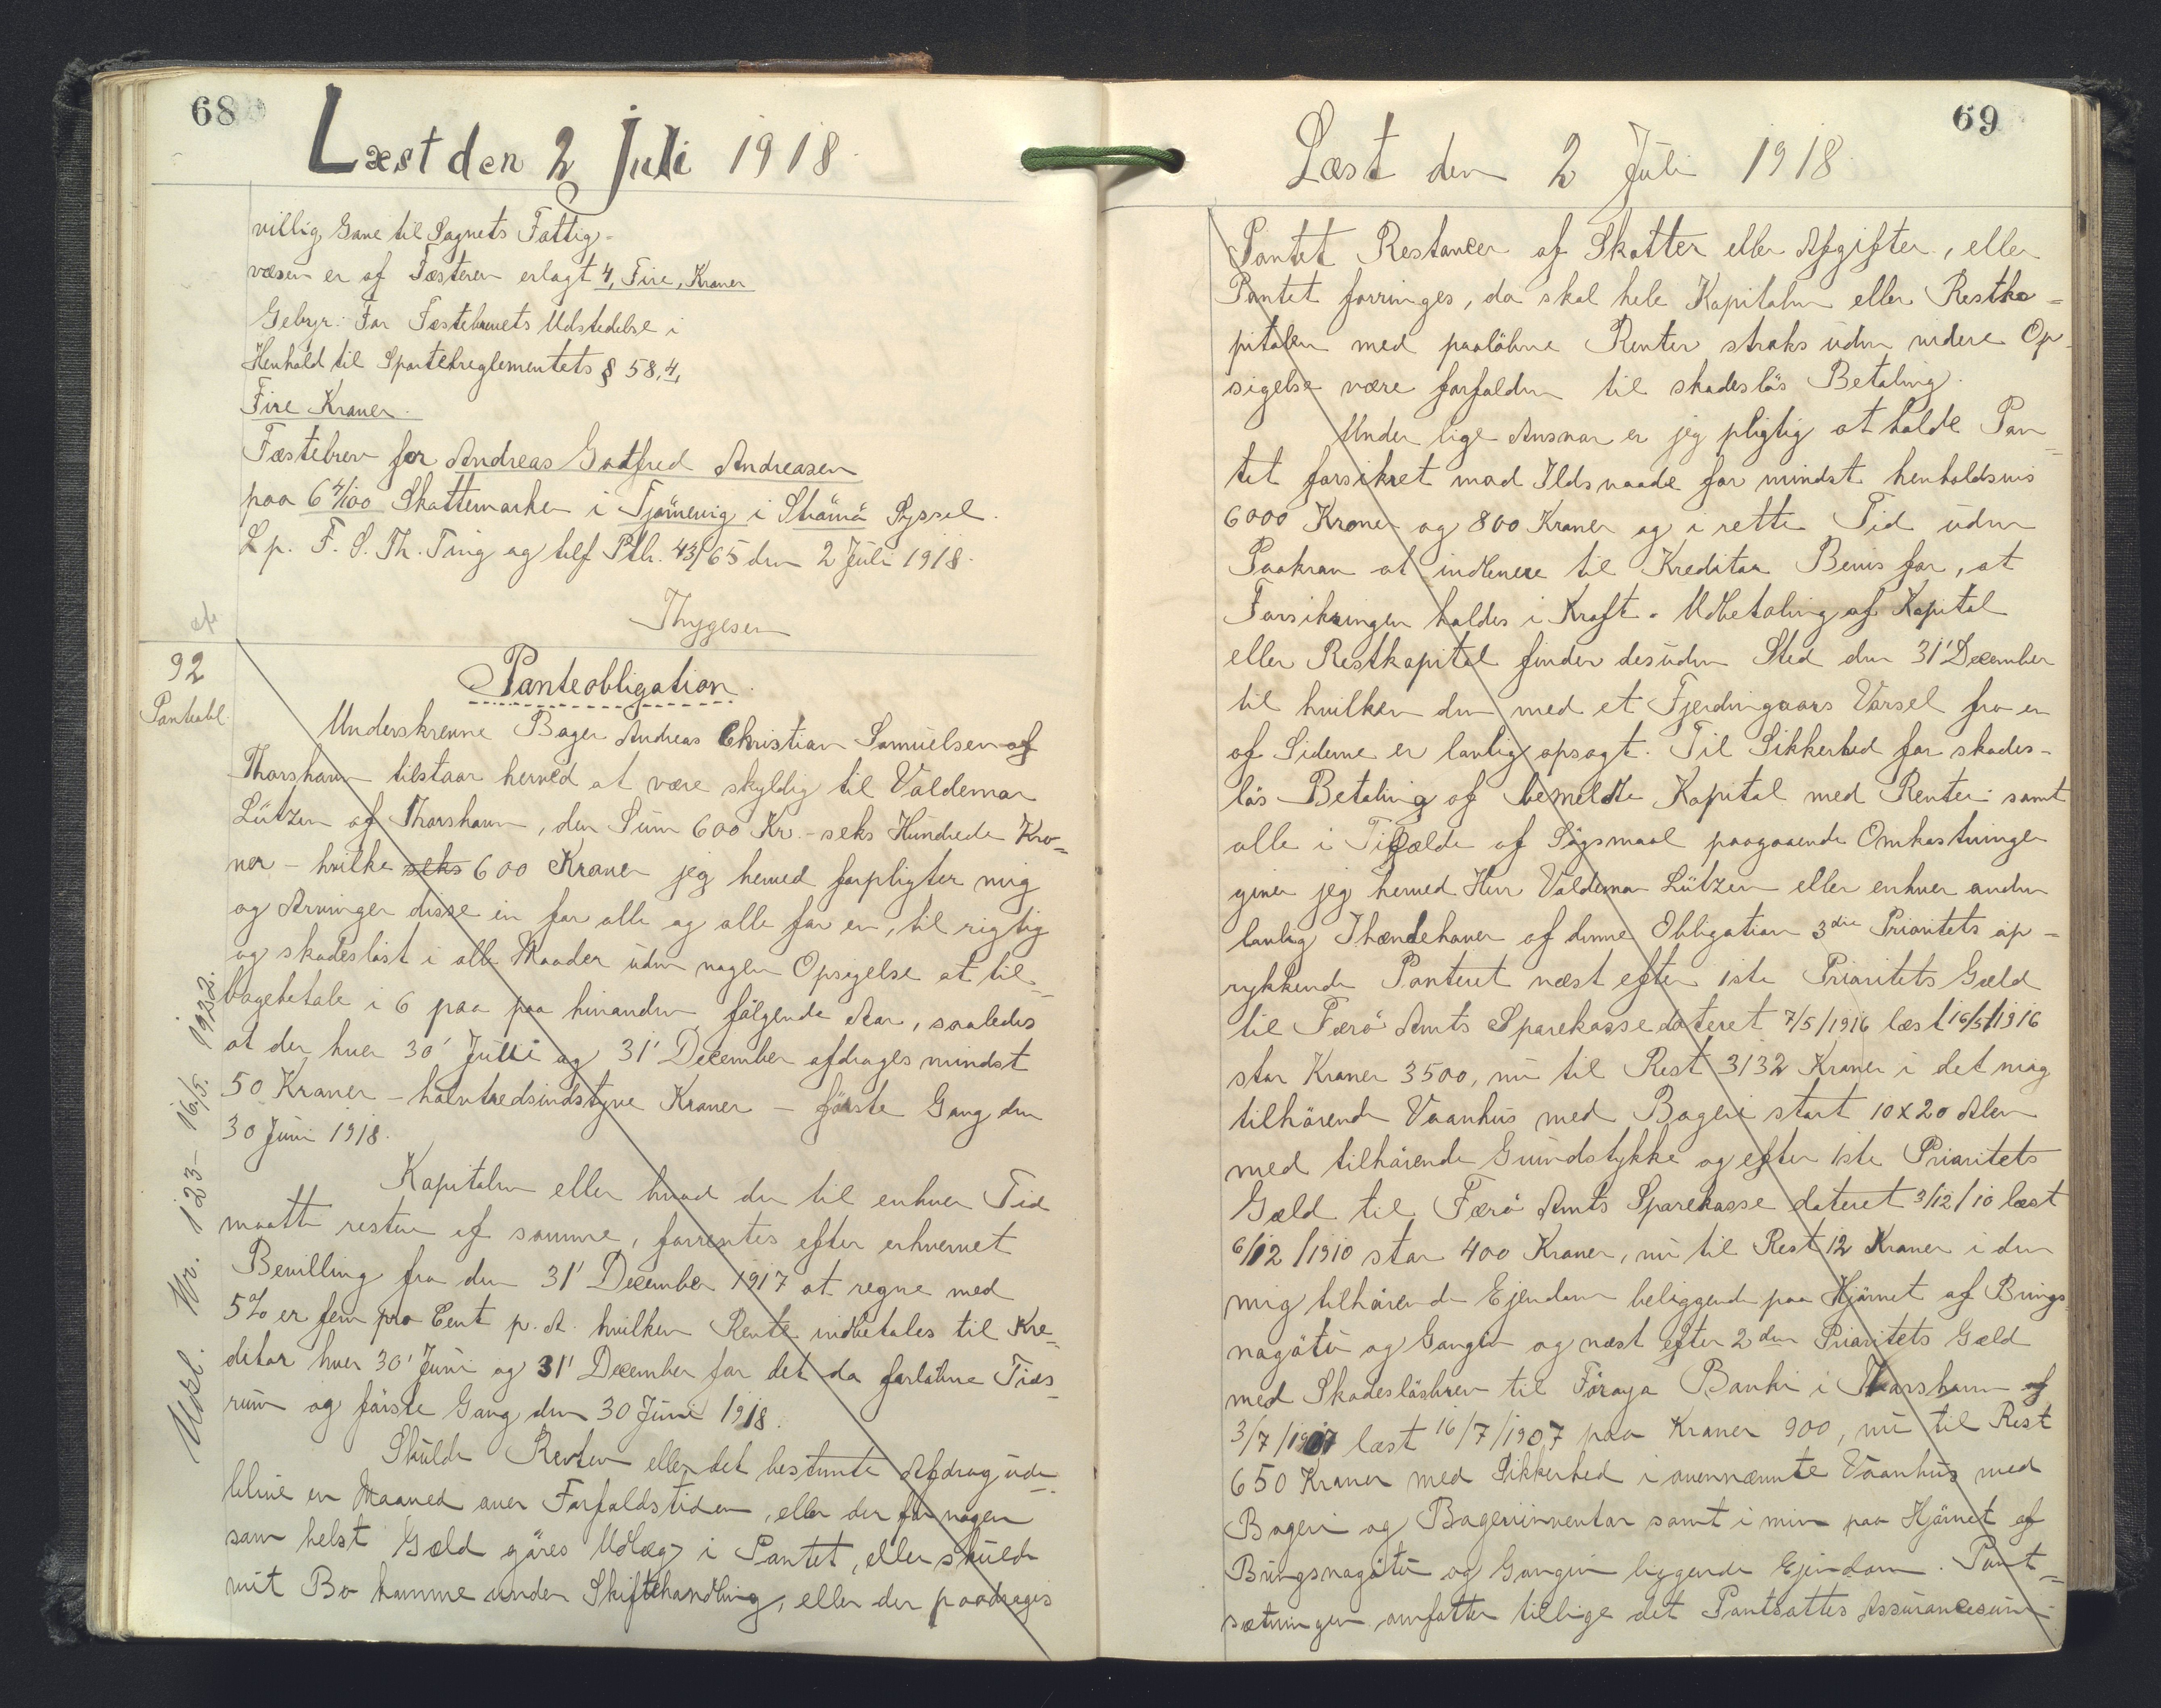 68
Læst den 2 Juli 1918.
villig Gave til Sognets Fattig-
væsen er af Fæsteren erlagt 4, Fire, Kroner
Gebyr: For Fæstebrevets Udstedelse i
Henhold til Sportelreglementets § 58, 4,
Fire Kroner.
Fæstebrev for Andreas Gotfred Andreasen
paa 6 4/100 Skattemarker i Tjörnevig i Strömö Syssel.
L p. F. S. Th. Ting og tilf Ptb. 43/65 den 2 Juli 1918.
Thygesen
92
Panteobl.
Panteobligation.
Underskrevne Bager Andreas Christian Samuelsen af
Thorshavn tilstaar herved at være skyldig til Valdemar
Lützen af Thorshavn, den Sum 600 Kr. - seks Hundrede Kro=
ner - hvilke seks 600 Kroner jeg herved forpligter mig
og Arvinger disse en for alle og alle for en, til rigtig
og skadesløst i alle Maader uden nogen Opsigelse at til=
bagebetale i 6 paa paa hinanden følgende Aar, saaledes
at der hver 30' Juli og 31' December afdrages mindst
50 Kroner - halvtredsindstyve Kroner - første Gang den
30 Juni 1918.
Kapitalen eller hvad der til enhver Tid
maatte restere af samme, forrentes efter erhvervet
Bevilling fra den 31' December 1917 at regne med
5% er fem pro Cent p. A. hvilken Rente indbetales til Kre=
ditor hver 30' Juni og 31' December for det da forløbne Tids=
rum og første Gang den 30 Juni 1918.
Skulde Renten eller det bestemte Afdrag ude=
blive en Maaned over Forfaldstiden, eller der for nogen
som helst Gæld gøres Udlæg i Pantet, eller skulde
mit Bo komme under Skiftehandling, eller der paadrages
Udsl. Nr. 123 - 16/5. 1922.
69
Læst den 2 Juli 1918.
Pantet Restancer af Skatter eller Afgifter, eller
Pantet forringes, da skal hele Kapitalen eller Restka=
pitalen med paaløbne Renter straks uden videre Op-
sigelse være forfalden til skadesløs Betaling.
Under lige Ansvar er jeg pligtig at holde Pan=
tet forsikret mod Ildsvaade for mindst henholdsvis
6000 Kroner og 800 Kroner og i rette Tid uden
Paakrav at indlevere til Kreditor Bevis for, at
Forsikringen holdes i Kraft. Udbetaling af Kapital
eller Restkapital finder desuden Sted den 31' December
til hvilken den med et Fjerdingaars Varsel fra en
af Siderne er lovlig opsagt. Til Sikkerhed for skades-
løs Betaling af bemeldte Kapital med Renter samt
alle i Tilfælde af Søgsmaal paagaaende Omkostninger
giver jeg herved Herr Valdemar Lützen eller enhver anden
lovlig Ihændehaver af denne Obligation 3die Prioritets op-
rykkende Panteret næst efter 1ste Prioritets Gæld
til Færö Amts Sparekasse dateret 7/5/1916 læst 16/5/1916
stor Kroner 3500, nu til Rest 3132 Kroner i det mig
tilhørende Vaanhus med Bageri stort 10x20 Alen
med tilhørende Grundstykke og efter 1ste Prioritets
Gæld til Færö Amts Sparekasse dateret 3/12/10 læst
6/12/1910 stor 400 Kroner, nu til Rest 12 Kroner i den
mig tilhørende Ejendom beliggende paa Hjörnet af Brings
nagötu og Gongin og næst efter 2den Prioritets Gæld
med Skadesløsbrev til Föroya Banki i Thorshavn af
3/7/1907 læst 16/7/1907 paa Kroner 900, nu til Rest
650 Kroner med Sikkerhed i ovennævnte Vaanhus med
Bageri og Bageriinventar samt i min paa Hjörnet af
Bringsnagötu og Gongin liggende Ejendom. Pant=
sætningen omfatter tillige det Pantsattes Assurancesum